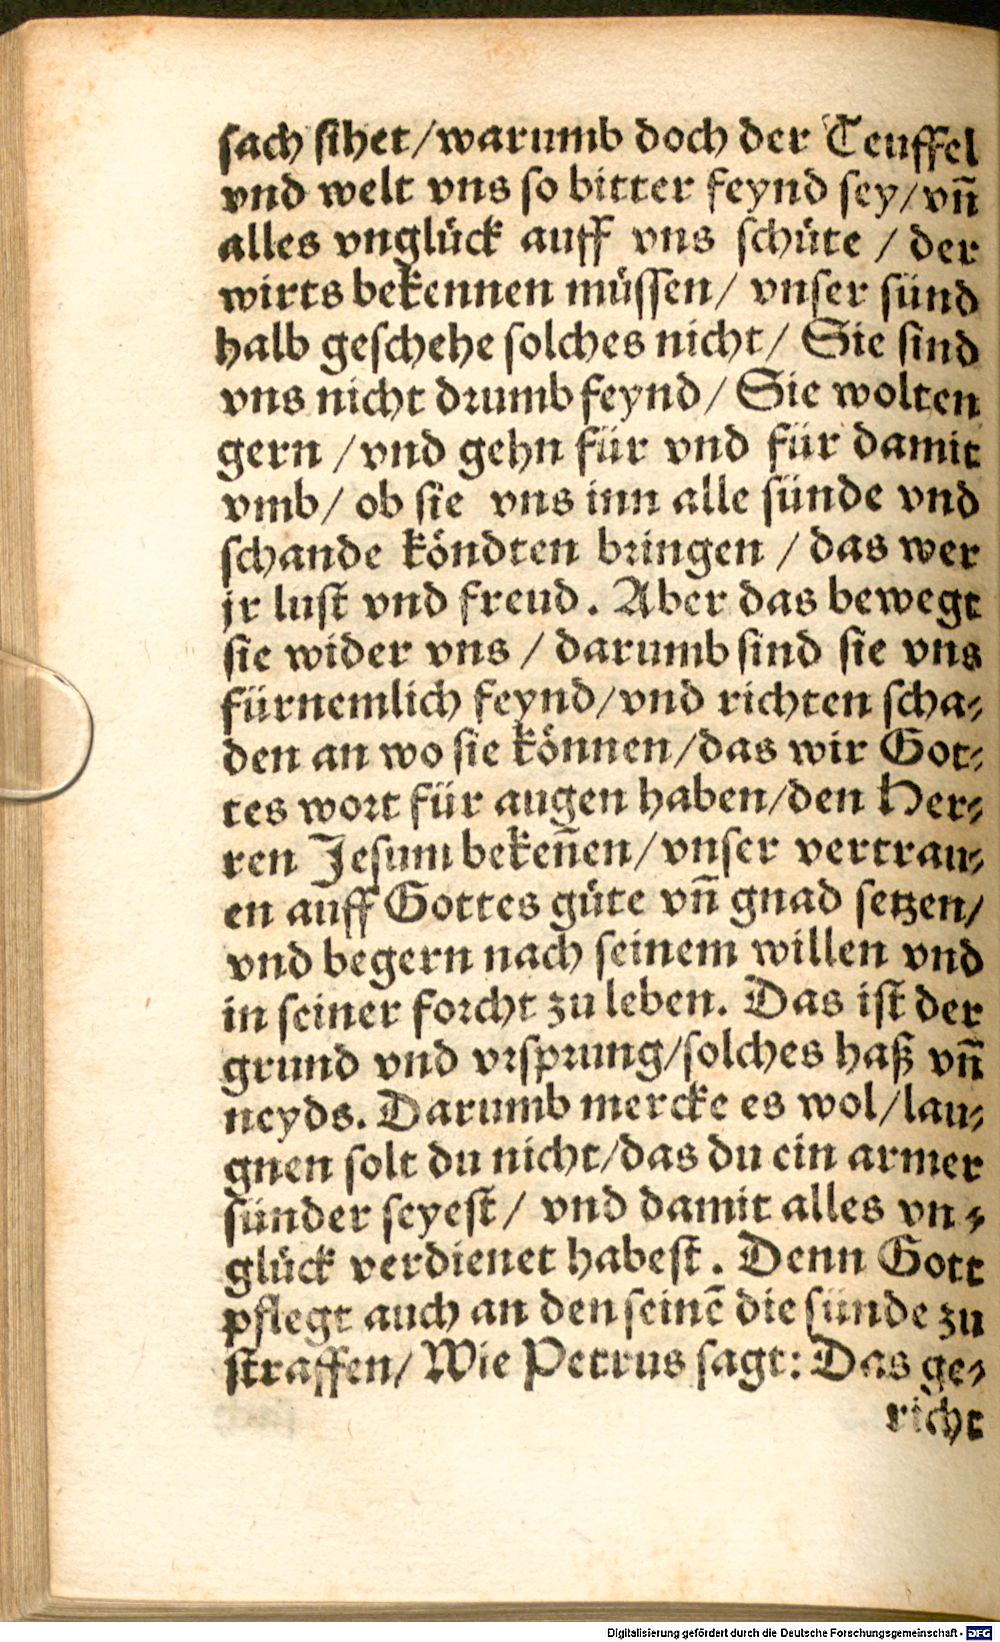 sach sihet/warumb doch der Teuffel
vnd welt vns so bitter feynd sey/vñ
alles vnglück auff vns schüte / der
wirts bekennen müssen/ vnser sünd
halb geschehe solches nicht/ Sie sind
vns nicht drumb feynd/ Sie wolten
gern /vnd gehn für vnd für damit
vmb/ ob sie vns inn alle sünde vnd
schande köndten bringen / das wer
jr lust vnd freud. Aber das bewegt
sie wider vns / darumb sind sie vns
fürnemlich feynd/vnd richten scha⸗
den an wo sie können/das wir Got⸗
tes wort für augen haben/den Her⸗
ren Jesum bekeñen/vnser vertrau⸗
en auff Gottes güte vñ gnad setzen/
vnd begern nach seinem willen vnd
in seiner forcht zu leben. Das ist der
grund vnd vrsprung/solches haß vñ
neyds. Darumb mercke es wol/lau⸗
gnen solt du nicht/das du ein armer
sünder seyest/ vnd damit alles vn⸗
glück verdienet habest. Denn Gott
pflegt auch an den seinē die sünde zu
straffen/ Wie Petrus sagt: Das ge⸗
richt
Digitalisierung gefördert durch die Deutsche Forschungsgemeinschaft - DFG